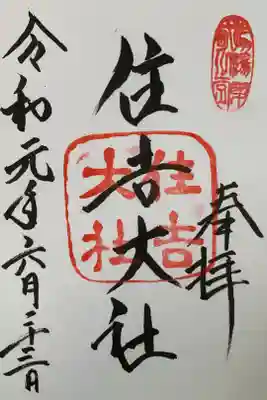 奉拝
住吉大社
住吉大社
令和元年六月二十三日